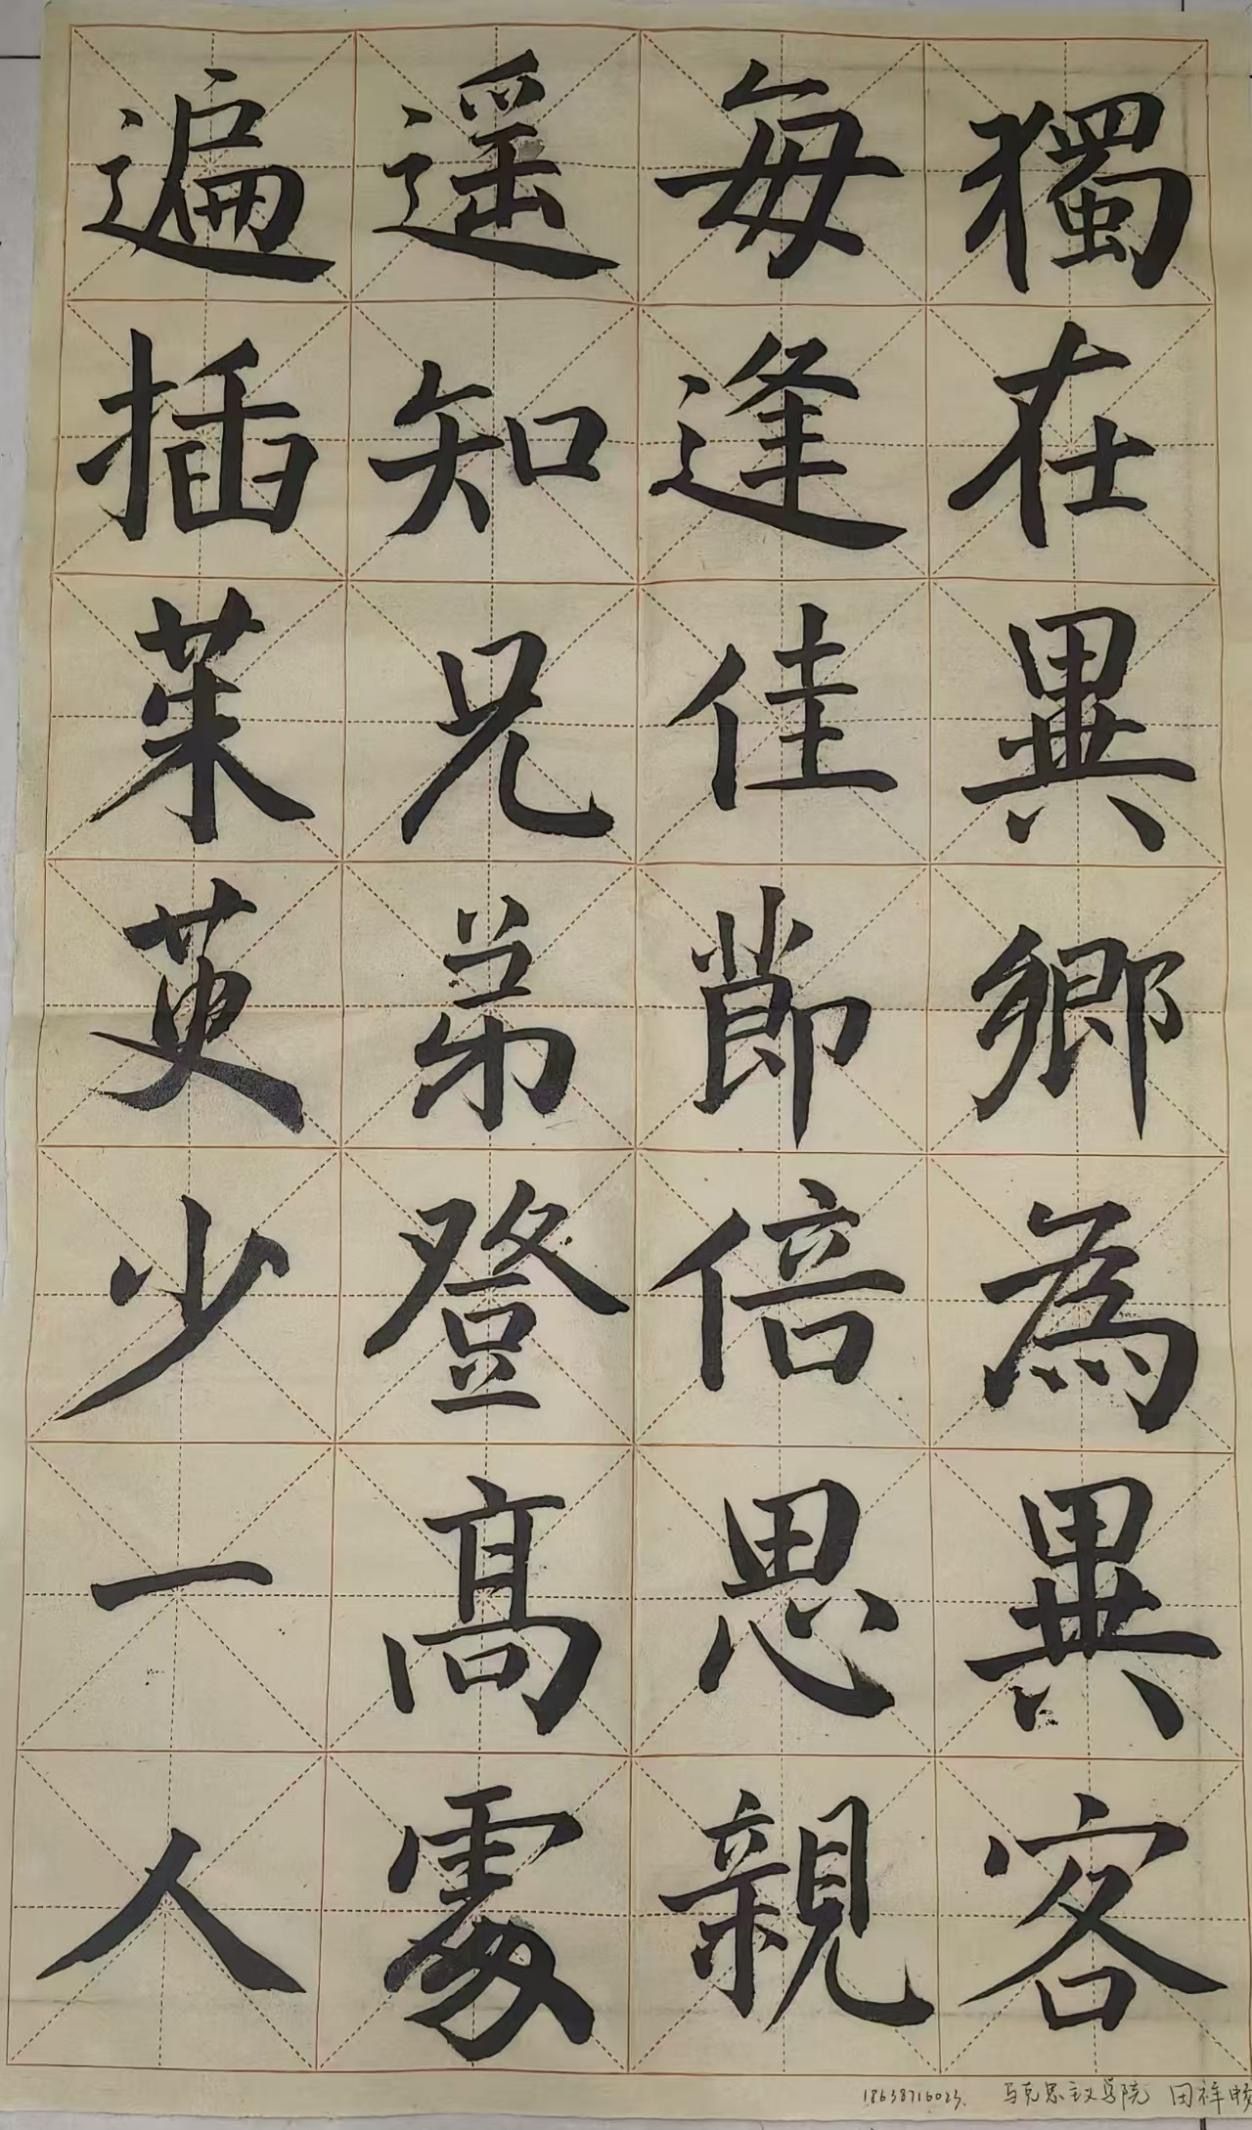 獨在異鄉為異客
每逢佳節倍思親
遥知兄弟登高處
遍插茱萸少一人
18638716023. 马克思主义学院 田祥